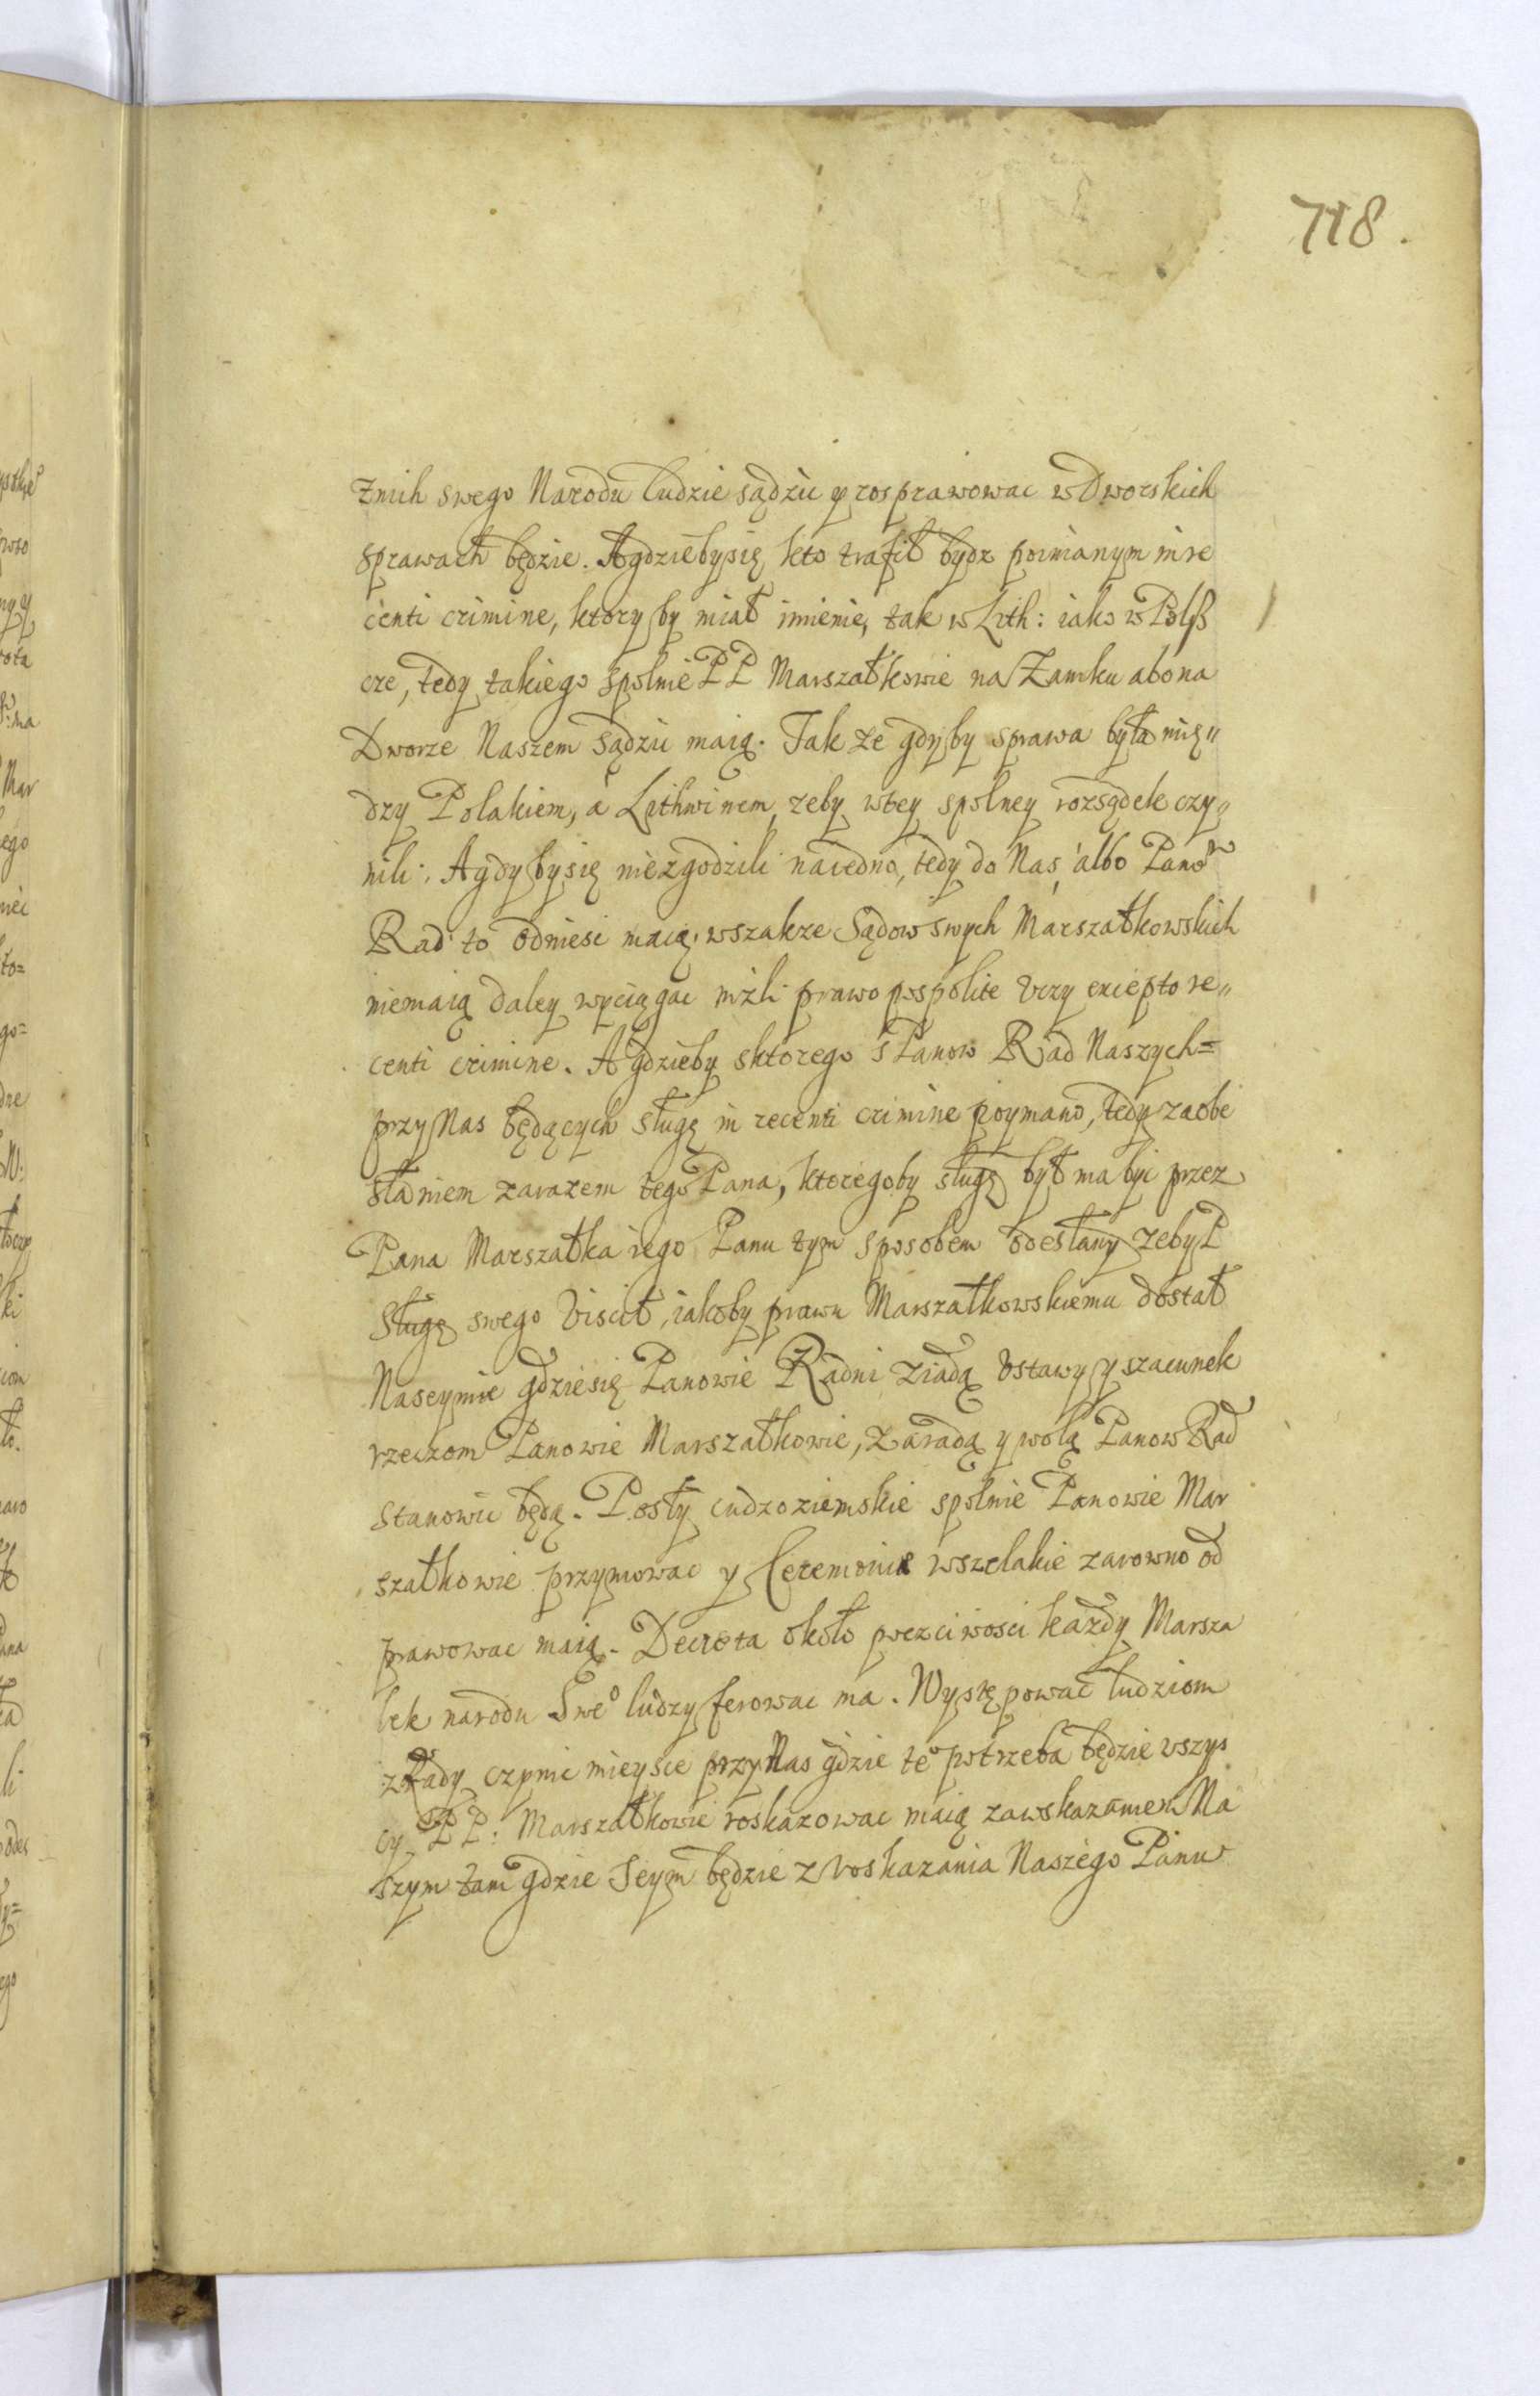 718.
znich swego Narodu ludzie sądzic y rosprawowac w Dworskich
sprawach będzie. A gdzieby się kto trafił bydz poimanym in re
centi crimine, ktory by miał imienie, tak w Lith: iako w Polß
cze, tedy takiego spolnie PP Marszałkowie na Zamku abo na
Dworze Naszem sądzic maią. Tak ze gdyby sprawa była mię„
dzy Polakiem, a Lithwinem, zeby w tey spolney rozsądek czy„
nili: A gdyby się niezgodzili naiedno, tedy do Nas albo Panow
Rad to odniesc maią, wszakze Sądow swych Marszałkowskich
niemaią daley wyciągac nizli prawo pospolite Vczy excepto re„
centi crimine. A gdzieby sktorego s Panow Rad Naszych=
przy Nas będących sługę in recenti crimine poymano, tedy za obe
słaniem zarazem tego Pana, ktoregoby sługą był ma byc przez
Pana Marszałka iego Panu tym sposobem odesłany zeby P
Sługę swego Viscił, iakoby prawu Marszałkowskiemu dostał
Naseymie gdzie się Panowie Radni ziadą Vstawy y szacunek
rzeczom Panowie Marszałkowie, zaradą y wolą Panow Rad
stanowic będą. Posły cudzoziemskie spolnie Panowie Mar
szałkowie przymowac y Ceremonie wszelakie zarowno od
prawowac maią. Decreta około poczciwosci kazdy Marsza
lek narodu Sweo ludzy ferowac ma. Występowac ludziom
z Rady czynic mieysce przy Nas gdzie teo potrzeba będzie wszys
cy PP: Marszałkowie roskazowac maią zawskazaniem Na
szym tam gdzie Seym będzie z roskazania Naszego Panu